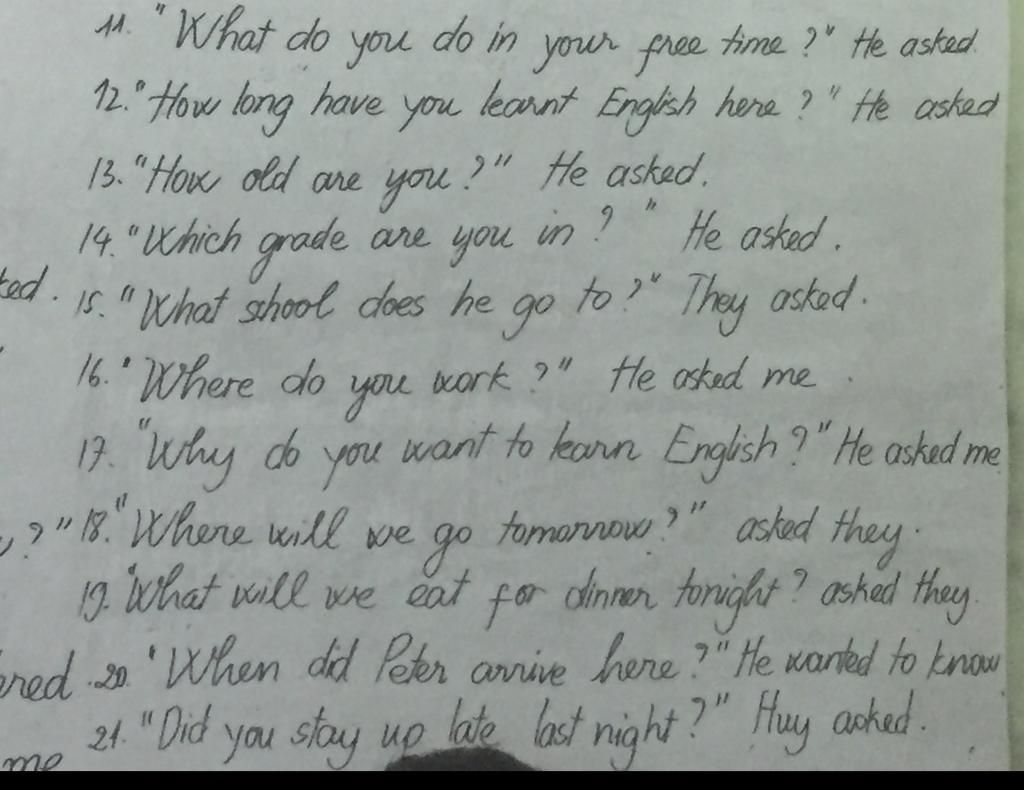 11. "What do you do in your free time?" He asked
12. "How long have you learnt English here?" He asked
13. "How old are you?" He asked.
14. "Which grade are you in?" He asked.
ked. 15. "What school does he go to?" They asked.
16. "Where do you work?" He asked me.
17. "Why do you want to learn English?" He asked me
?" 18. "Where will we go tomorrow?" asked they.
19. "What will we eat for dinner tonight? asked they.
ered 20. "When did Peter arrive here?" He wanted to know
21. "Did you stay up late last night?" Huy asked.
me